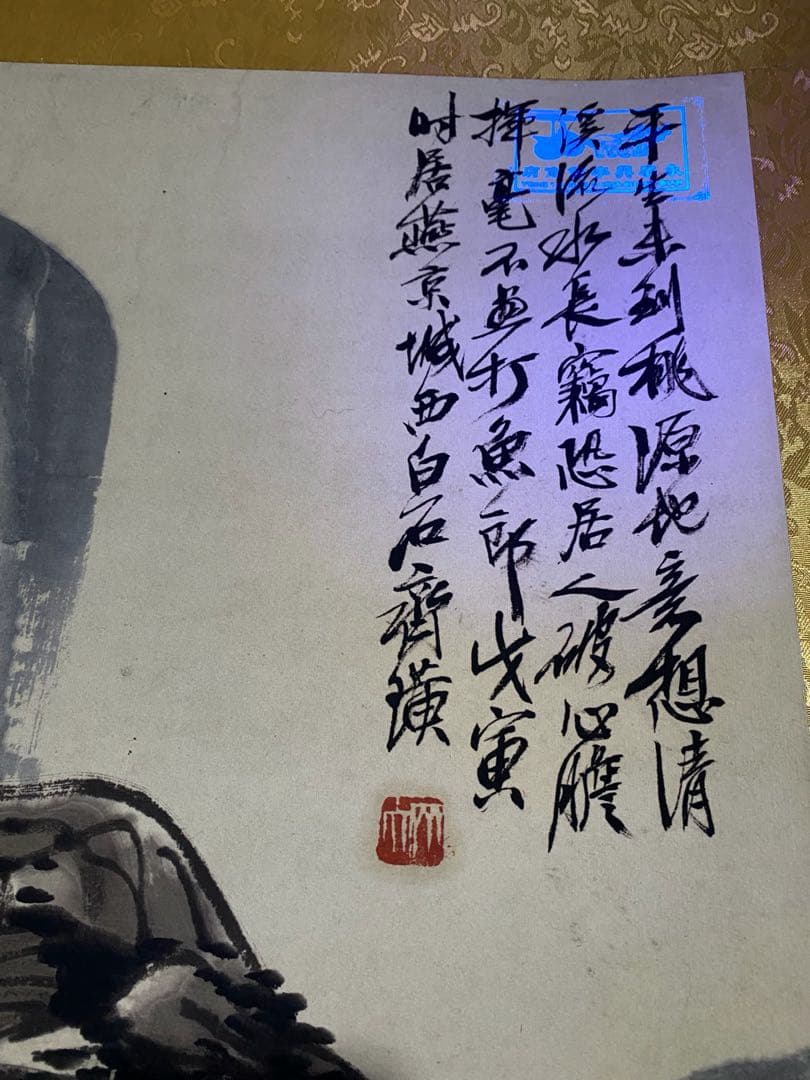 平生未到桃源地意想清
溪流水長竊恐居人破心膽
揮毫不畫打魚郎戊寅
时居燕京城西白石齊璜